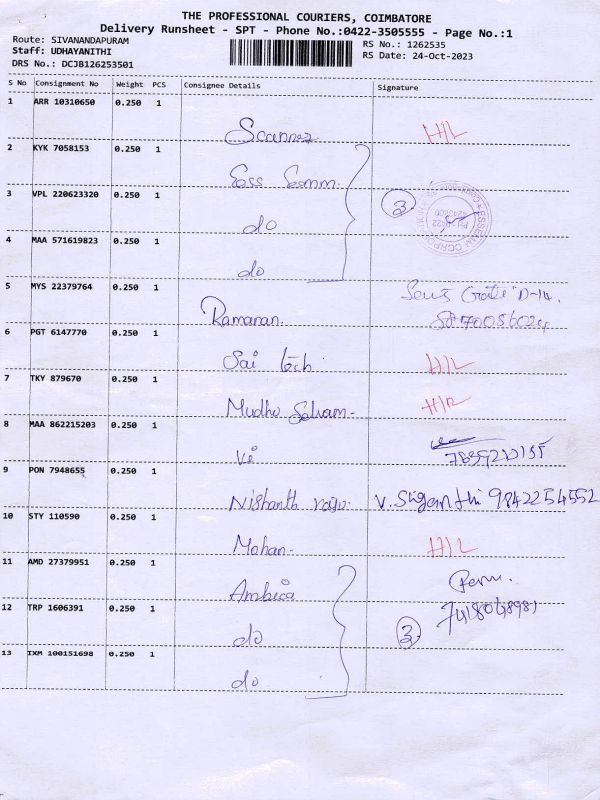 THE PROFESSIONAL COURIERS, COIMBATORE
Delivery Runsheet - SPT - Phone No.:0422-3505555 - Page No.:1
Route: SIVANANDAPURAM
Staff: UDHAYANITHI
DRS No.: DCJB126253501
RS No.: 1262535
RS Date: 24-Oct-2023
S No Consignment No Weight PCS Consignee Details Signature
1 ARR 10310650 0.250 1
Scanner H/L
2 KYK 7058153 0.250 1
3 VPL 220623320 0.250 1
do 3
4 MAA 571619823 0.250 1
do
5 MYS 22379764 0.250 1
Ramanan
6 PGT 6147770 0.250 1
Sai tech H/L
7 TKY 879670 0.250 1
8 MAA 862215203 0.250 1
Vi
9 PON 7948655 0.250 1
Nishanth V. Suganthi 9842254552
10 STY 110590 0.250 1
Mohan H/L
11 AMD 27379951 0.250 1
Ambica
12 TRP 1606391 0.250 1
do 3
13 IXM 100151698 0.250 1
do